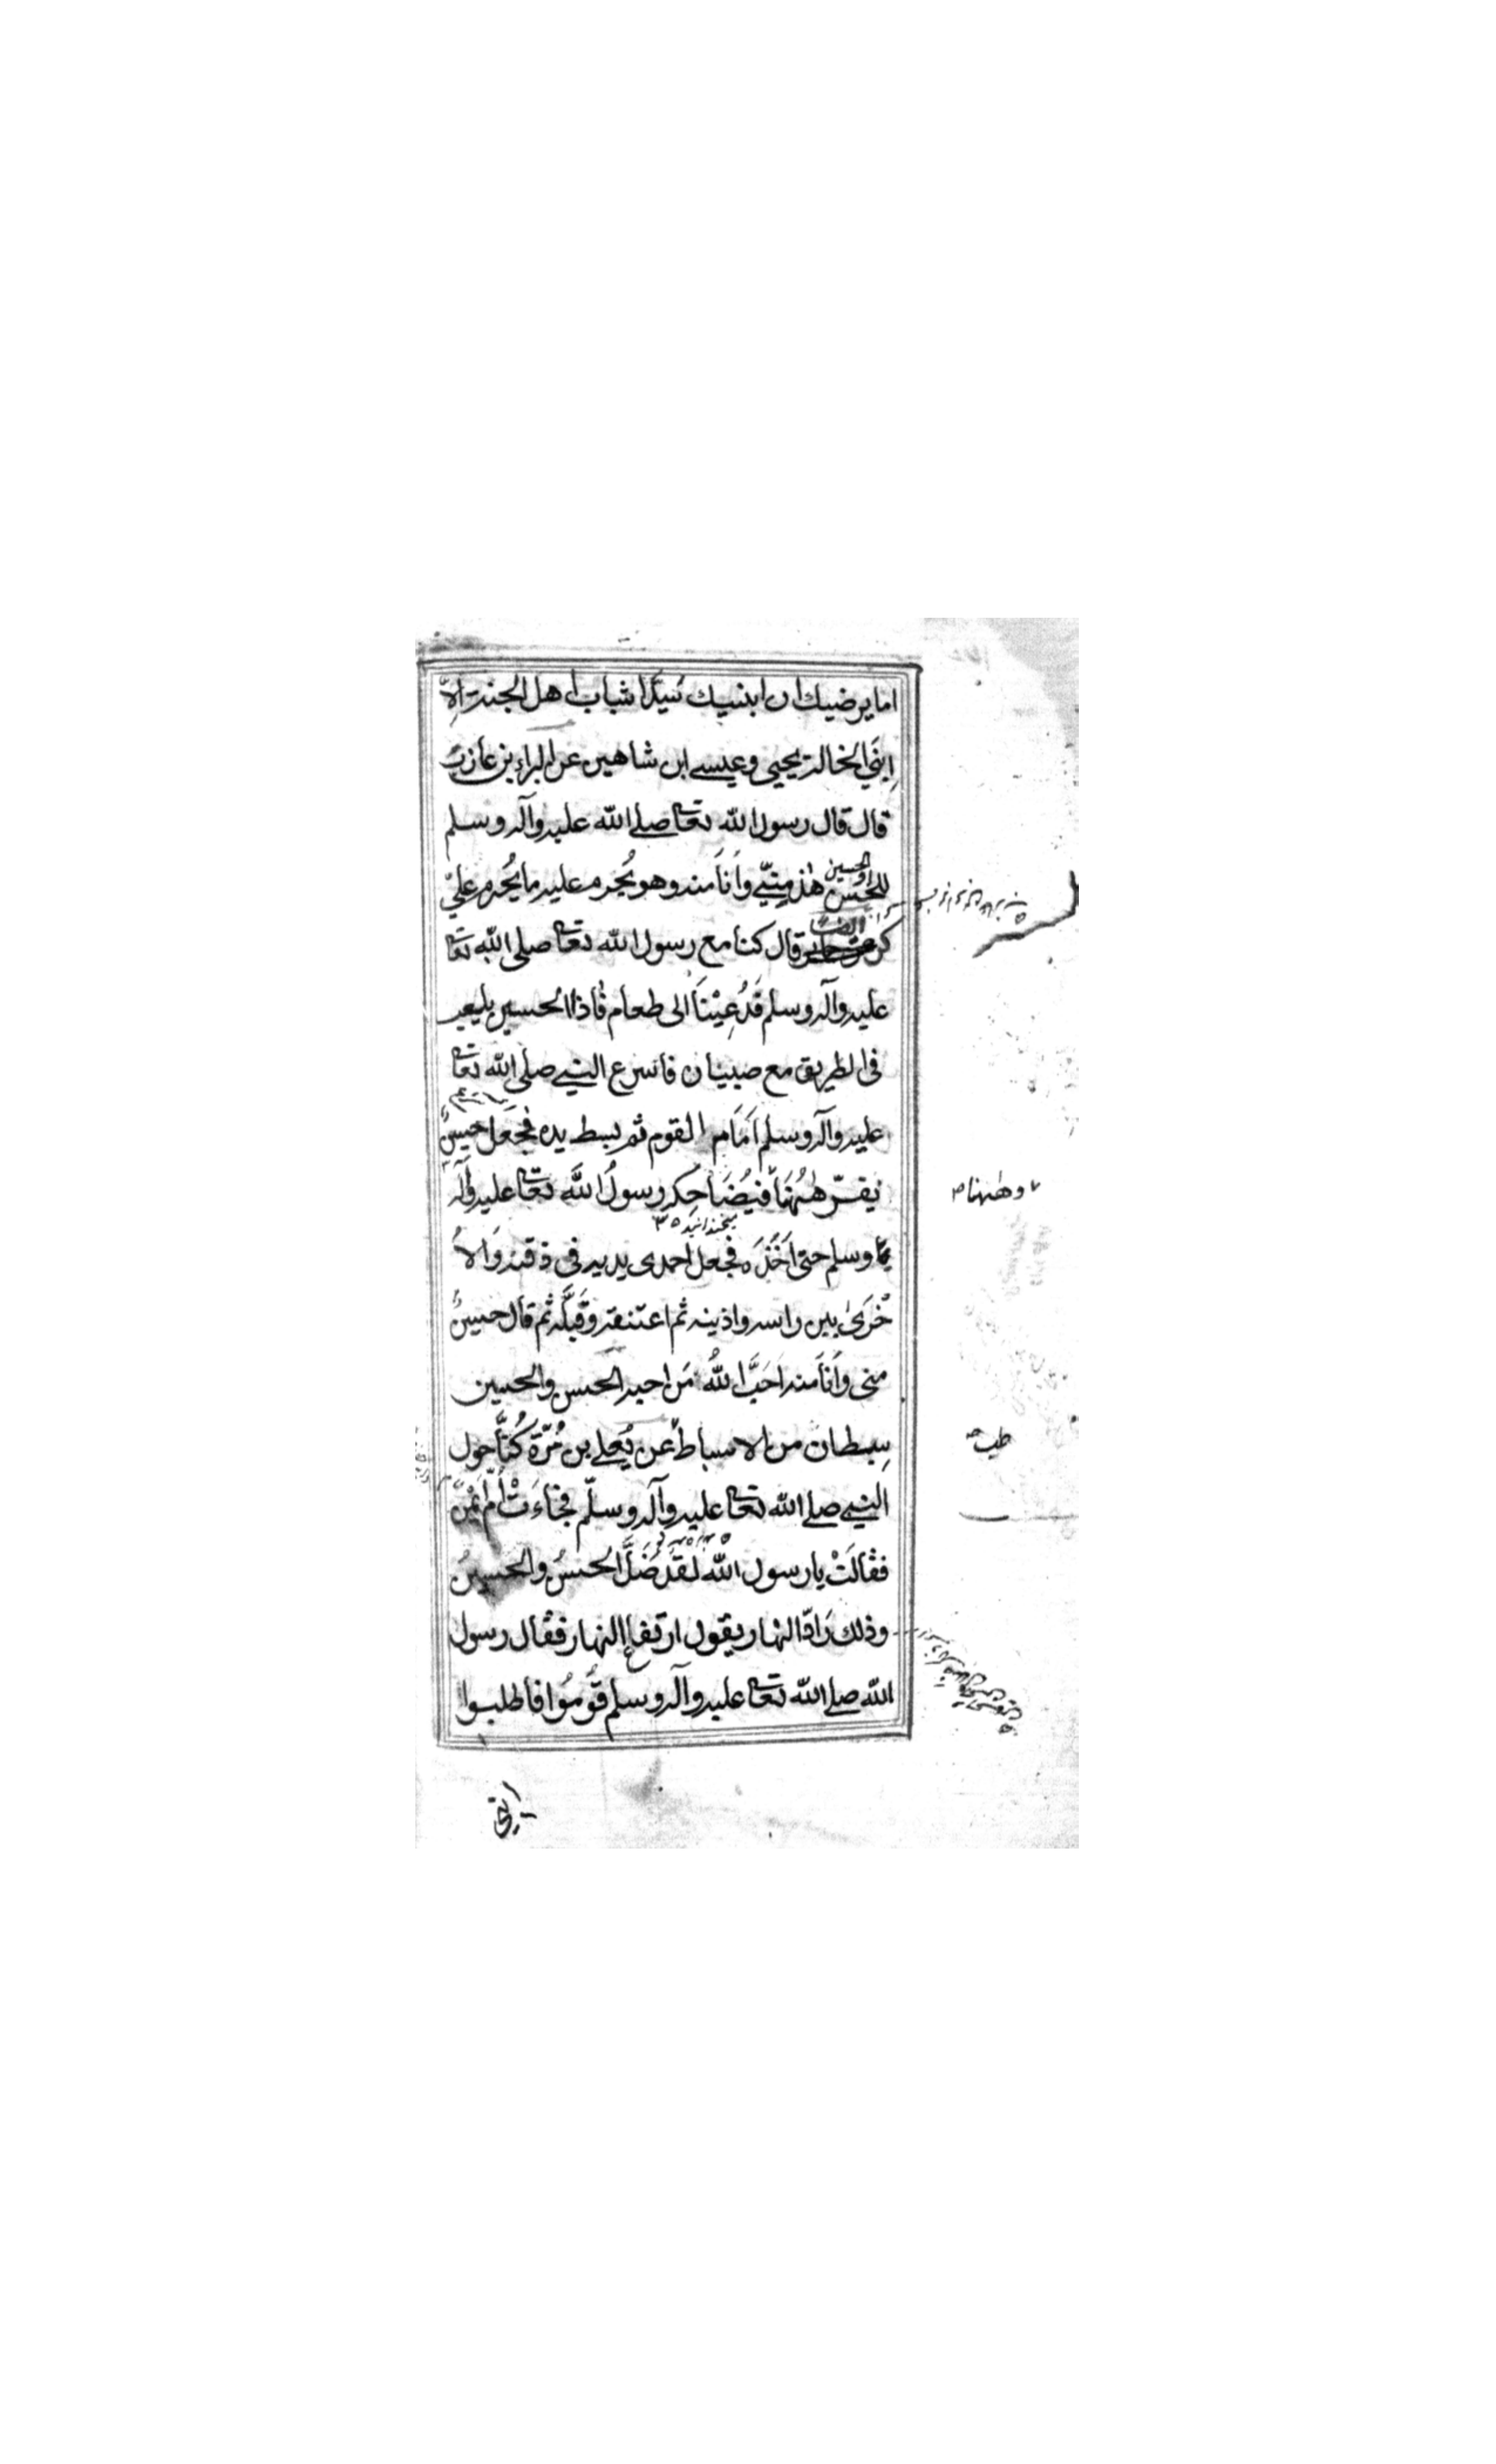 اما يرضيك ان ابنيك سَيّدا شباب اهل الجنة اِلاّ
اِبنَي الخالة يحيى وعيسے ابن شاهين عن البراء بن عازب
قال قال رسول الله تعا صلے الله عليه وآله وسلم
للحسن والحسين هٰذ مِنّيے وَاَنَا منه وهو يُحرم عليه ما يُحرم عليّ
كر قال كنا مع رسول الله تعا صلى الله تعا
عليه وآله وسلم فَدُعِيْنَا الى طعام فاذا الحسين يلعب
فى الطريق مع صبيان فاسرع النبے صلى الله تعا
عليه وآله وسلم اَمَامَ القوم ثم بسط يده فجَعَل حسينٌ
يفرّ هٰهُنَا فيُضَاحِكه رسولُ الله تعا عليه وآله
وسلم حتى اَخَذَه فجعل احدى يديه فى ذقنه وَالاُ
خْرَىٰ بين راسه واذنيه ثم اعتنقه وقَبَّله ثم قال حسينٌ
منى وَاَنَا منه اَحَبَّ اللهُ مَن احبه الحسن والحسين
سِبطان من الاسباط عن يَعلے بن مُرّة كُنَّا حول
النبے صلے الله تعا عليه وآله وسلّم فجاءَتْ اُمّ اَيْمَن
فقالَتْ يا رسول الله لَقَدْ ضَلَّ الحسنُ والحسينُ
وذلك رَادّ النهار يقول ارتفاع النهار فقال رسول
الله صلے الله تعا عليه وآله وسلم قُومُوا فاطلبوا
وههنا
طب